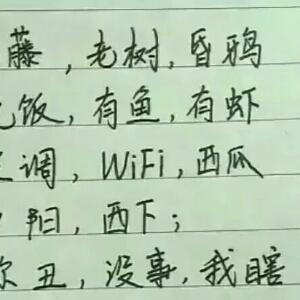 藤，老树，昏鸦
饭，有鱼，有虾
调，WiFi，西瓜
阳，西下；
丑，没事，我瞎